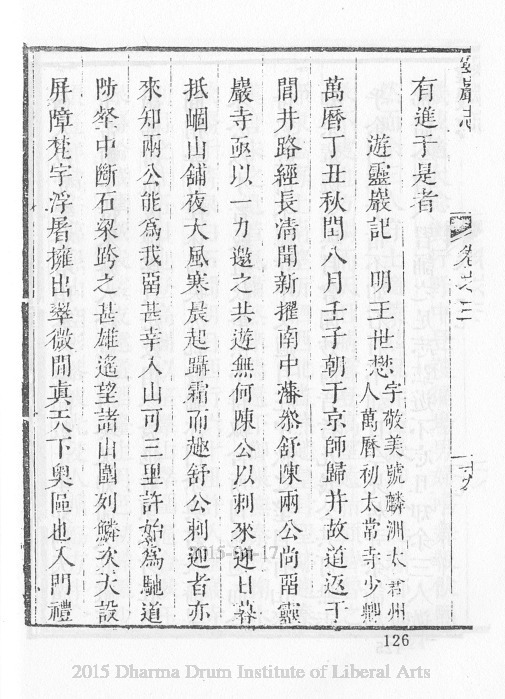 靈巖志
卷之三
有進于是者
遊靈巖記 明王世懋字敬美號麟洲太倉州人萬曆初太常寺少卿
萬曆丁丑秋閏八月壬子朝于京師歸幷故道返于
間井路經長清聞新擢南中藩叅舒陳兩公尚畱靈
巖寺亟以一力邀之共遊無何陳公以刺來迎日暮
抵崓山舖夜大風寒晨起躡霜而趣舒公刺迎者亦
來知兩公能爲我畱甚幸入山可三里許始爲馳道
陟壑中斷石梁跨之甚雄遙望諸山圜列鱗次大設
屏障梵宇浮屠擁出翠微間眞天下奧區也入門禮
126
2015-04-17
2015 Dharma Drum Institute of Liberal Arts